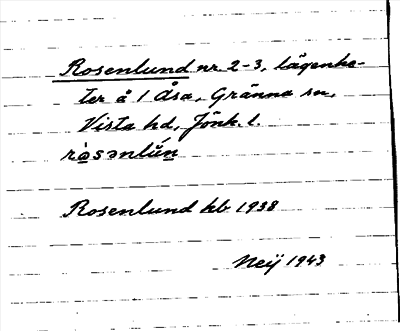 Rosenlund nr 2-3, lägenhe-
ter å 1 Åsa, Gränna sn,
Vista hd, Jönk. l.
ròsənlún
Rosenlund kb 1938
Neij 1943